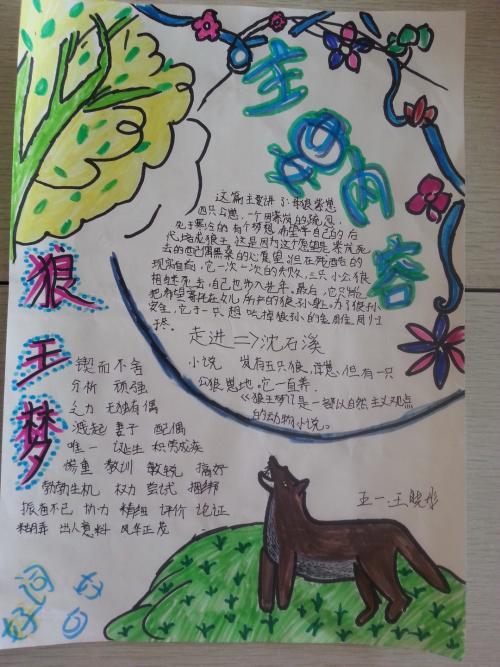 主要内容
狼王梦
这篇主要讲了:母狼紫岚
四只公崽,一个因紫岚的疏忽,
死于寒冷的 有个梦想 希望平自己的后
代培成狼王 这是因为这个愿望是 紫岚死
去的配偶黑桑的心愿里 但在残酷的
现实面前,它一次一次的失败,三只小公狼
相继死去,自己也步入老年。最后,它只能
把希望寄托在女儿 所护的狼孙身上。为了狼孙
安全,它于一只想吃掉狼孙的金雕 同归于
尽。
走进⇒沈石溪
小说 岚有五只狼 但有一只
公狼崽地 它一自养.
《狼王梦》是一部以自然主义观点
的动物小说。
锲而不舍
分析 顽强
乏力 无独有偶
减起 妻子 配偶
唯一 诞生 积劳成疾
教训 敏锐
勃勃生机 权力 尝试 捆绑
协力 精细 评价 论证
出人意料 风华正茂
五一.王晓彤
好词好句